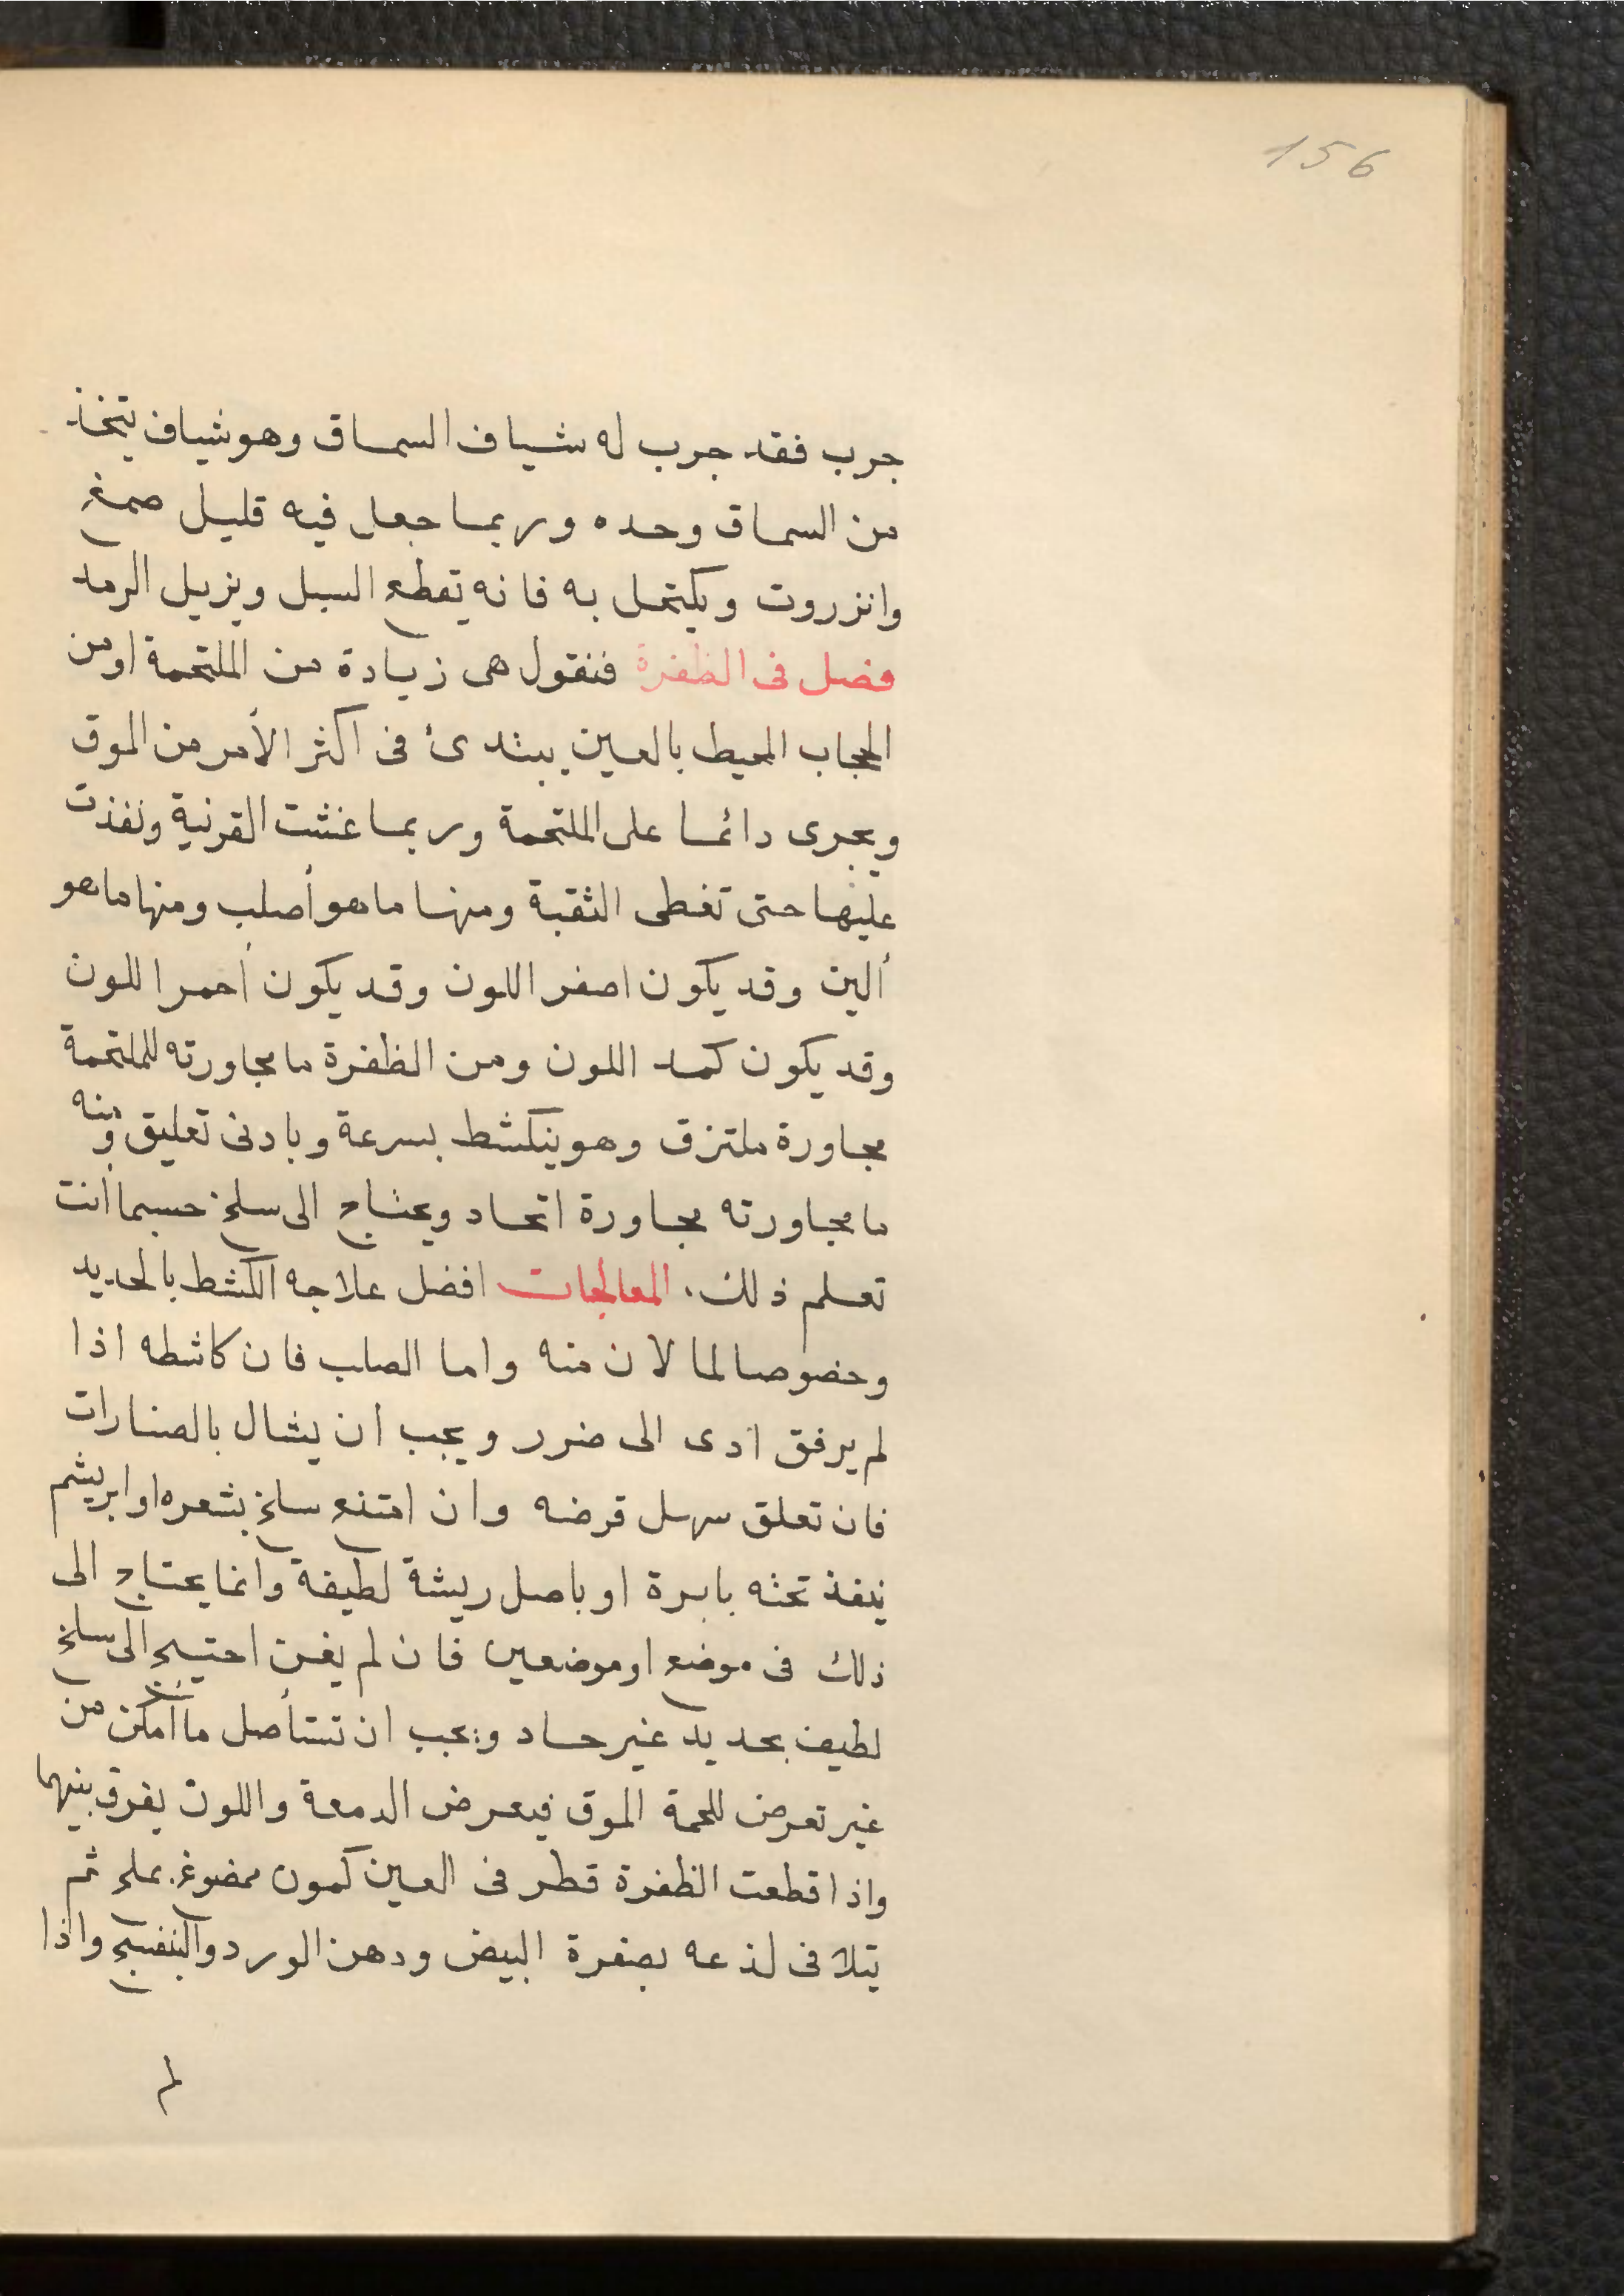 156
جرب فقد جرب له شياف السماق وهو شياف يتخذ
من السماق وحده وربما جعل فيه قليل صمغ
وانزروت ويكتحل به فانه يقطع السبل ويزيل الرمد
فصل فى الظفرة فنقول هى زيادة من الملتحمة او من
الحجاب المحيط بالعين يبتدئ فى اكثر الأمر من الموق
ويجرى دائما على الملتحمة وربما غشت القرنية ونفذت
عليها حتى تغطى الثقبة ومنها ما هو أصلب ومنها ما هو
ألين وقد يكون اصفر اللون وقد يكون أحمر اللون
وقد يكون كمد اللون ومن الظفرة ما مجاورته للملتحمة
مجاورة ملتزق وهو ينكشط بسرعة وبادنى تعليق ومنه
ما مجاورته مجاورة اتحاد ويحتاج الى سلخ حسبما أنت
تعلم ذلك. المعالجات افضل علاجه الكشط بالحديد
وخصوصا لما لان منه واما الصلب فان كاشطه اذا
لم يرفق ادى الى ضرر ويجب ان يشال بالصنارات
فان تعلق سهل قرضه وان امتنع سلخ بشعره او ابريشم
ينفذ تحته بابرة او باصل ريشة لطيفة وانما يحتاج الى
ذلك فى موضع او موضعين فان لم يغن احتيج الى سلخ
لطيف بحديد غير حاد ويجب ان تستأصل ما أمكن من
غير تعرض للحمة الموق فيعرض الدمعة واللون يفرق بينهما
واذا قطعت الظفرة قطر فى العين كمون ممضوغ بملح ثم
يتلافى لذعه بصفرة البيض ودهن الورد والبنفسج واذا
لم